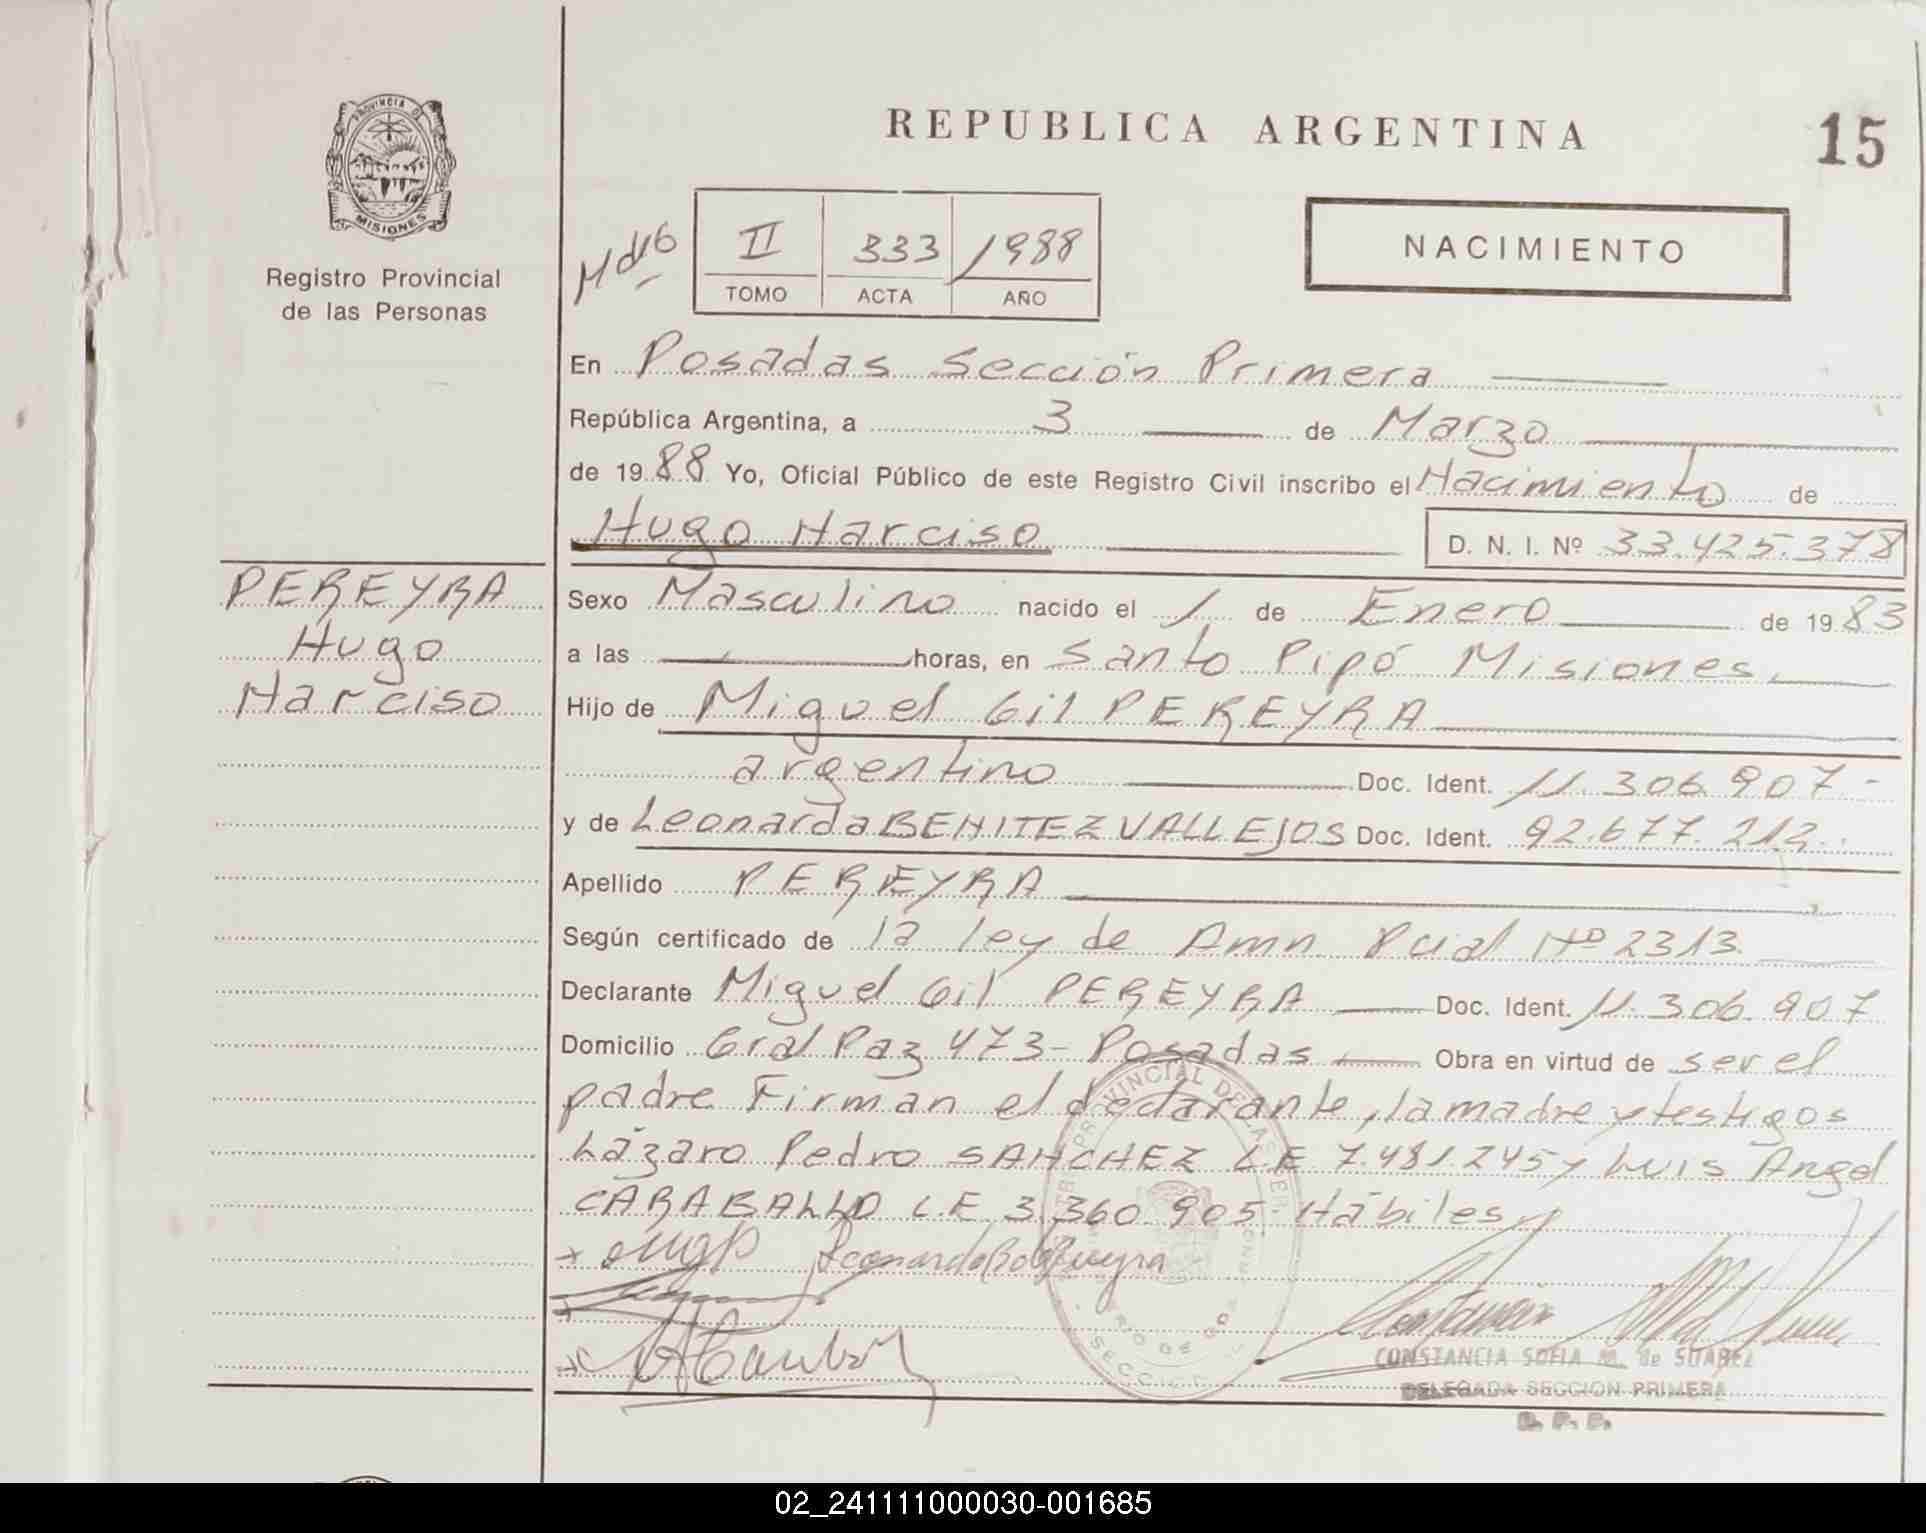 PROVINCIA DE
MISIONES
Registro Provincial
de las Personas
PEREYRA
Hugo
Narciso
REPUBLICA ARGENTINA
15
II 333 1988
TOMO ACTA AÑO
NACIMIENTO
En Posadas Sección Primera
República Argentina, a 3 de Marzo
de 1988 Yo, Oficial Público de este Registro Civil inscribo el Nacimiento de
Hugo Narciso D. N. I. Nº 33.425.378
Sexo Masculino nacido el 1 de Enero de 1983
a las horas, en Santo Pipó Misiones
Hijo de Miguel Gil PEREYRA
argentino Doc. Ident. 11.306.907-
y de Leonarda BENITEZ VALLEJOS Doc. Ident. 92.677.212.
Apellido PEREYRA
Según certificado de la ley de Amn. Pcial Nº 2313
Declarante Miguel Gil PEREYRA Doc. Ident. 11.306.907
Domicilio Gral Paz 473- Posadas Obra en virtud de ser el
padre Firman el declarante, la madre y testigos
Lázaro Pedro SANCHEZ L.E 7.481.245 y Luis Angel
CARABALLO L.E. 3.360.905 Hábiles
CONSTANCIA SOFIA M. de SUAREZ
DELEGADA SECCION PRIMERA
R. P. P.
02_241111000030-001685